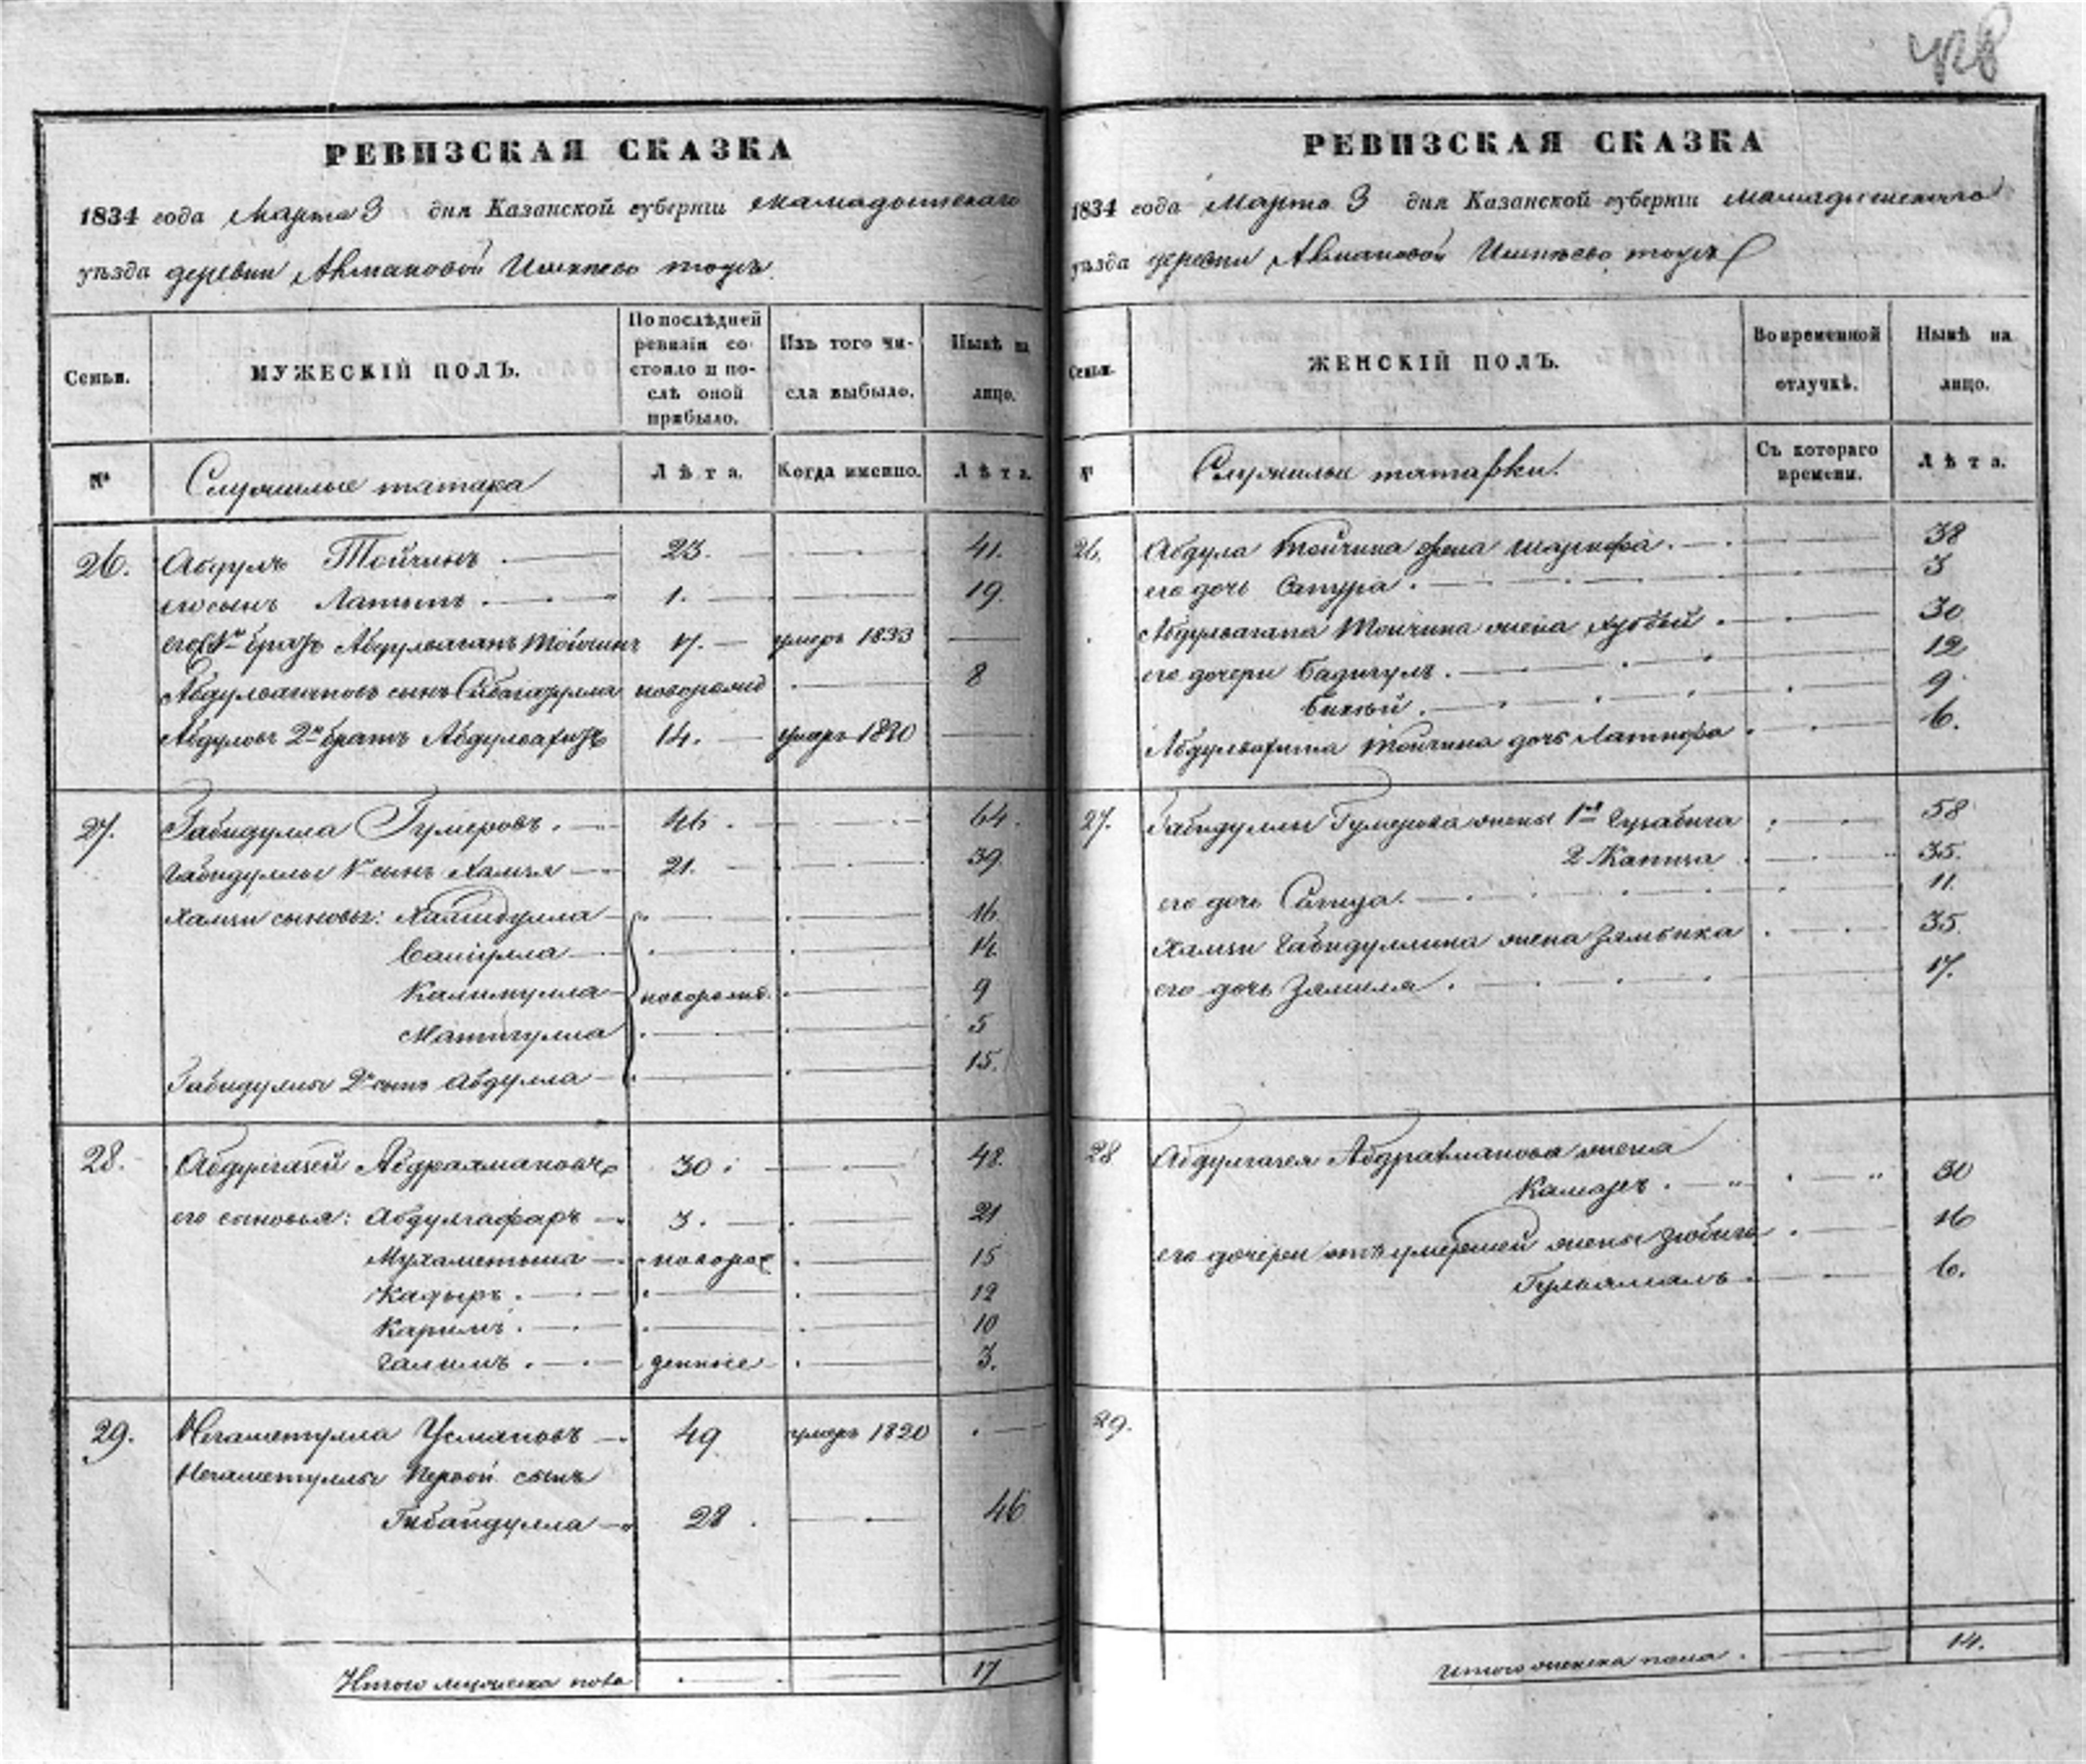 РЕВИЗСКАЯ СКАЗКА
1834 года Марта 3 дня Казанской губерніи Мамадышскаго
уѣзда деревни Акмановой Ишкеево тожъ
Семьи. МУЖЕСКІЙ ПОЛЪ. По послѣдней ревизіи состояло и послѣ оной прибыло. Изъ того числа выбыло. Нынѣ на лицо.
№ Служилые татара Лѣта. Когда именно. Лѣта.
26. Абдулъ Тойчинъ 23. 41.
его сынъ Латыпъ 1. 19.
его 1й братъ Абдулваганъ Тойчинъ 17. умеръ 1833
Абдулвагановъ сынъ Сибагатулла новорожд 8
Абдуловъ 2й братъ Абдулвахитъ 14. умеръ 1820
27. Габидулла Гумеровъ. 46. 64.
Габидуллы 1й сынъ Хамзя 21. 39.
Хамзи сыновья: Хамидулла 16.
Валиулла 14.
Калимулла новорожд. 9
Матигулла 5
Габидуллы 2й сынъ Абдулла 15.
28. Абдулгазей Абдрахмановъ 30. 48.
его сыновья: Абдулгафаръ 3. 21
Мухаметьша новорож 15
Кадыръ. 12
Каримъ. 10
Галимъ. денные 3.
29. Негаметулла Усмановъ 49 умеръ 1820
Негаметуллы Первой сынъ
Гибайдулла 28. 46
Итого мужеска пола 17
РЕВИЗСКАЯ СКАЗКА
1834 года Марта 3 дня Казанской губерніи Мамадышскаго
уѣзда деревни Акмановой Ишкеево тожъ
Семьи. ЖЕНСКІЙ ПОЛЪ. Во временной отлучкѣ. Нынѣ на лицо.
№ Служилыи татарки. Съ котораго времени. Лѣта.
26. Абдула Тойчина жена Шарифа. 38
его дочь Сатура. 3
Абдулвагапа Тойчина жена 30
его дочери Бадигулъ. 12
Бикьяй. 9.
Абдулвахита Тойчина дочь Латифа 6.
27. Габидуллы Гумерова жены 1я Гузабига 58
2 Катиза 35.
его дочь Сагида. 11.
Хамзи Габидуллина жена Зямбика 35.
его дочь Зямиля. 17.
28 Абдулгазея Абдрахманова жена
Камаръ. 30
его дочери отъ умершей жены Зюбига 16
Гульямалъ. 6.
29.
Итого женска пола. 14.